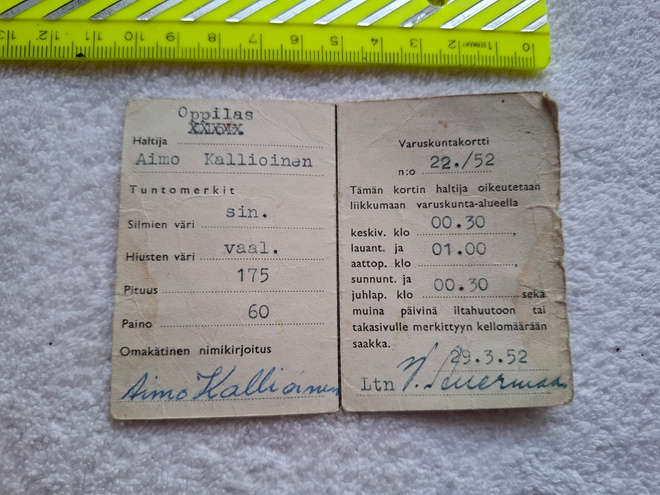 Oppilas
XXXXXX
Haltija
Aimo Kallioinen
Tuntomerkit
Silmien väri sin.
Hiusten väri vaal.
Pituus 175
Paino 60
Omakätinen nimikirjoitus
Aimo Kallioinen
Varuskuntakortti
n:o 22./52
Tämän kortin haltija oikeutetaan
liikkumaan varuskunta-alueella
keskiv. klo 00.30,
lauant. ja
aattop. klo 01.00,
sunnunt. ja
juhlap. klo 00.30 sekä
muina päivinä iltahuutoon tai
takasivulle merkittyyn kellomäärään
saakka.
29.3.52
Ltn
0 1 2 3 4 5 6 7 8 9 10 11 12 13